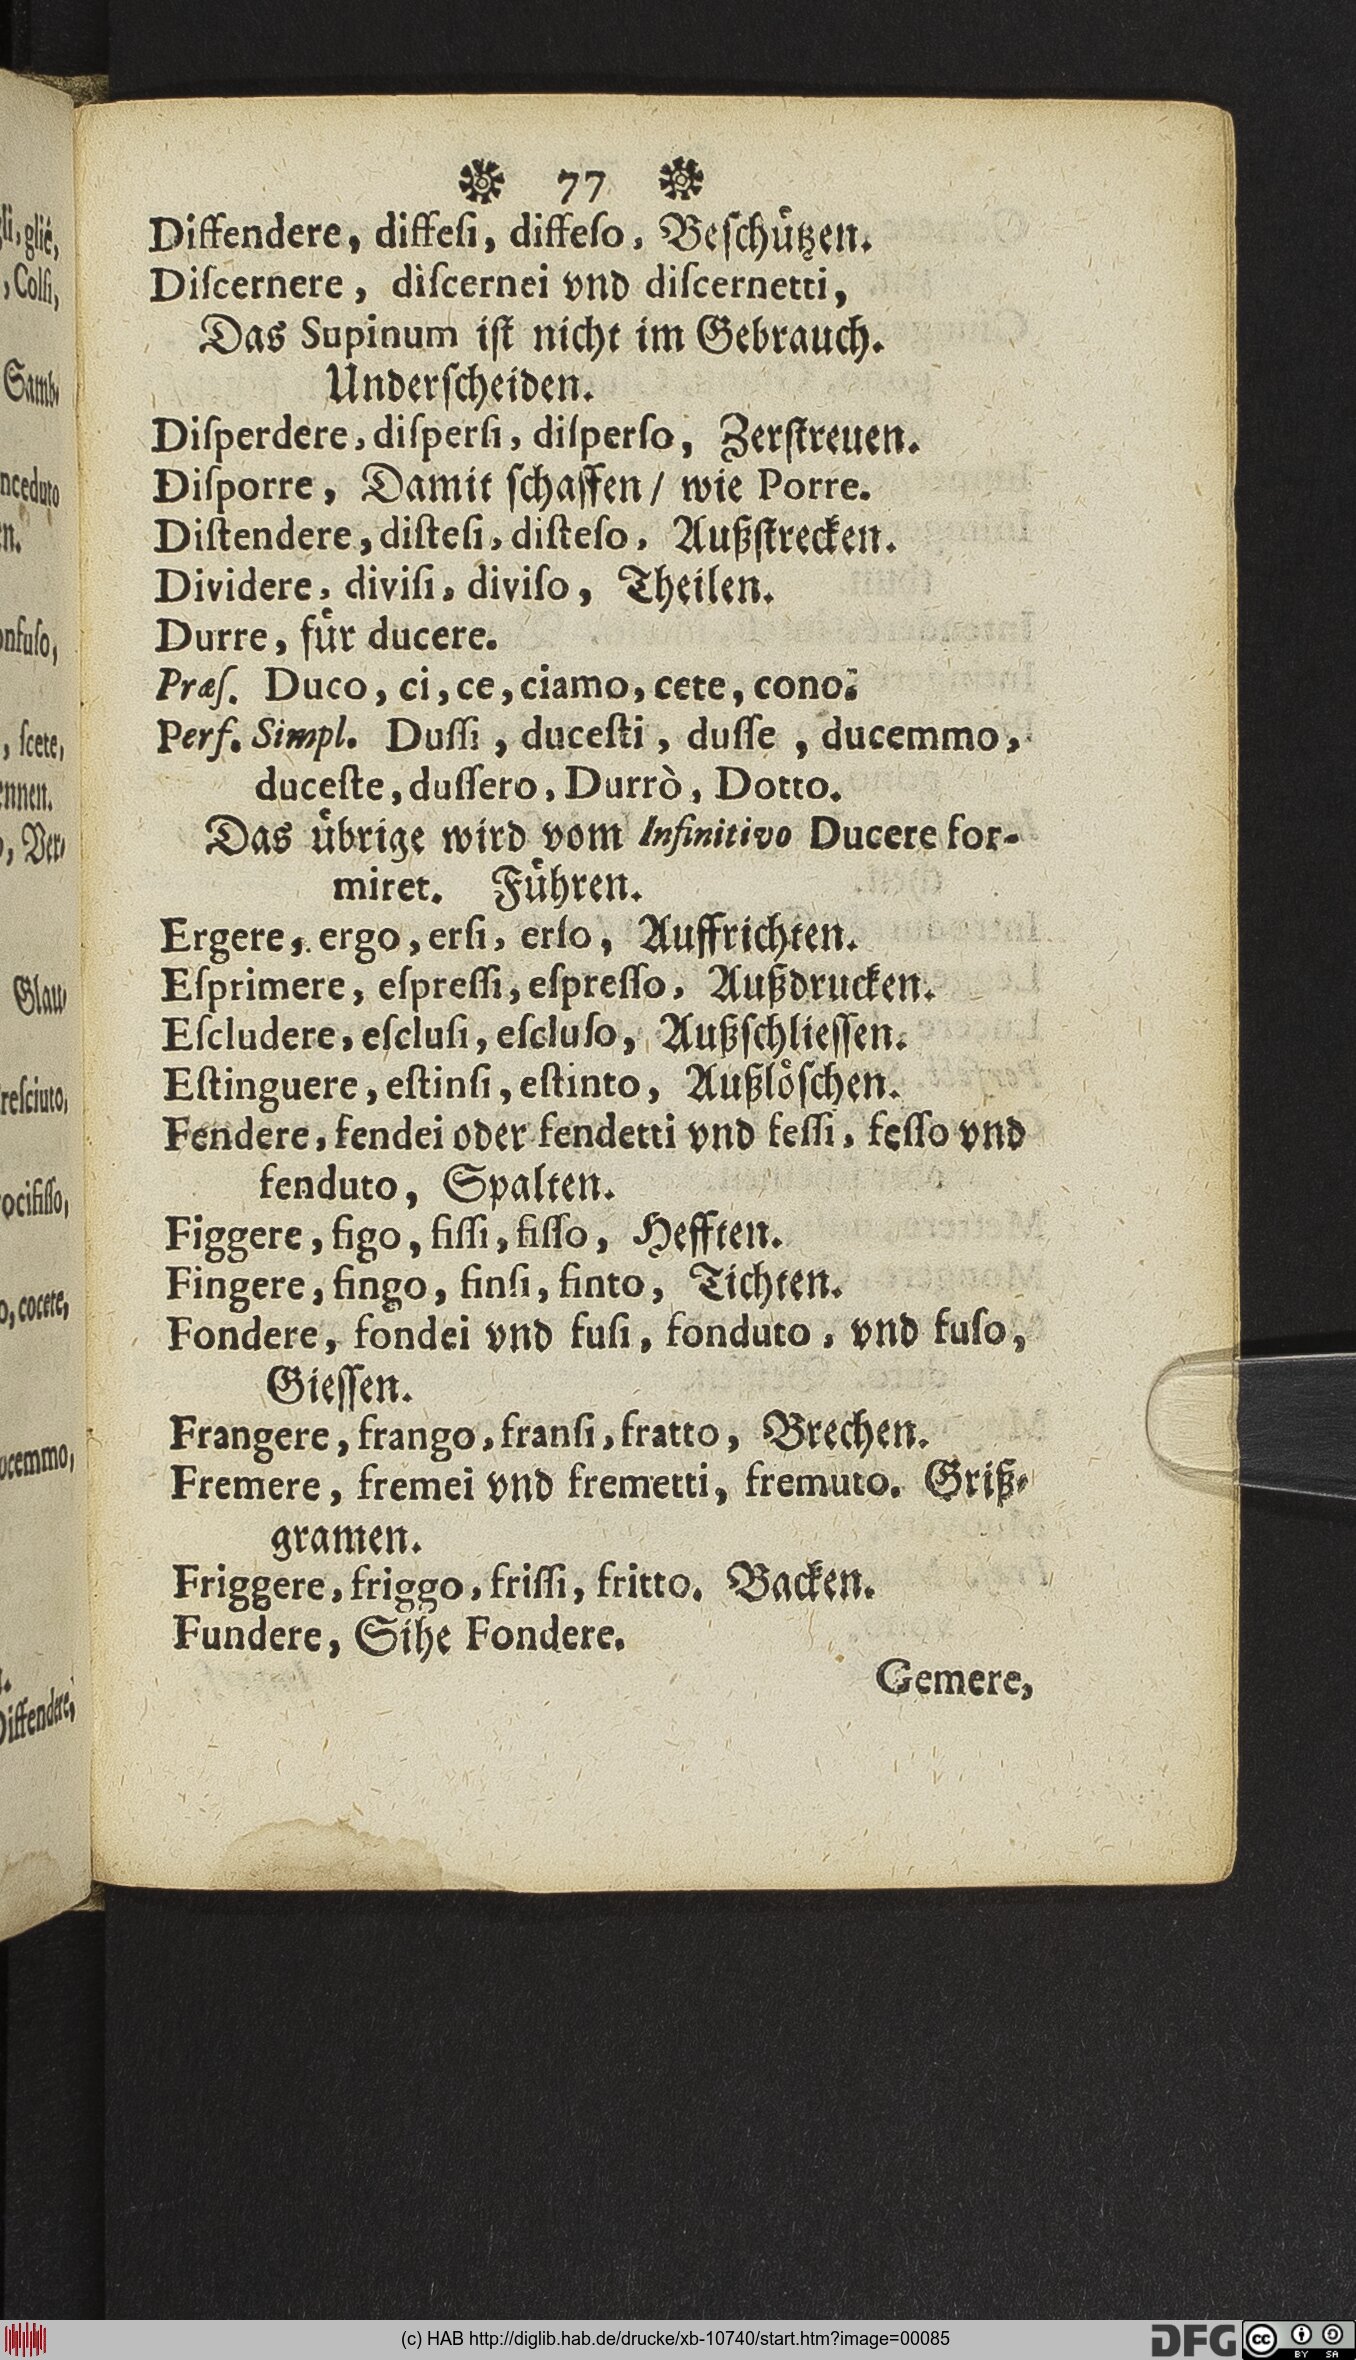 77
Diffendere, diffeſi, diffeſo, Beſchuͤtzen.
Diſcernere, diſcernei vnd diſcernetti,
Das Supinum iſt nicht im Gebrauch.
Underſcheiden.
Diſperdere, diſperſi, diſperſo, Zerſtreuen.
Diſporre, Damit ſchaffen / wie Porre.
Diſtendere, diſteſi, diſteſo, Außſtrecken.
Dividere, diviſi, diviſo, Theilen.
Durre, fuͤr ducere.
Præſ. Duco, ci, ce, ciamo, cete, cono.
Perf. Simpl. Duſſi, duceſti, duſſe, ducemmo,
duceſte, duſſero, Durrò, Dotto.
Das uͤbrige wird vom Infinitivo Ducere for-
miret. Fuͤhren.
Ergere, ergo, erſi, erſo, Auffrichten.
Eſprimere, eſpreſſi, eſpreſſo, Außdrucken.
Eſcludere, eſcluſi, eſcluſo, Außſchlieſſen.
Eſtinguere, eſtinſi, eſtinto, Außloͤſchen.
Fendere, fendei oder fendetti vnd feſſi, feſſo vnd
fenduto, Spalten.
Figgere, figo, fiſſi, fiſſo, Hefften.
Fingere, fingo, finſi, finto, Tichten.
Fondere, fondei vnd fuſi, fonduto, vnd fuſo,
Gieſſen.
Frangere, frango, franſi, fratto, Brechen.
Fremere, fremei vnd fremetti, fremuto. Griß-
gramen.
Friggere, friggo, friſſi, fritto. Backen.
Fundere, Sihe Fondere.
Gemere,
li, glié,
, Colſi,
Samb-
nceduto
en.
onfuſo,
, ſcete,
ennen.
o, Ver-
Glau-
reſciuto,
ocifiſſo,
o, cocete,
ucemmo,
Diffendere,
(c) HAB http://diglib.hab.de/drucke/xb-10740/start.htm?image=00085
DFG
cc BY SA